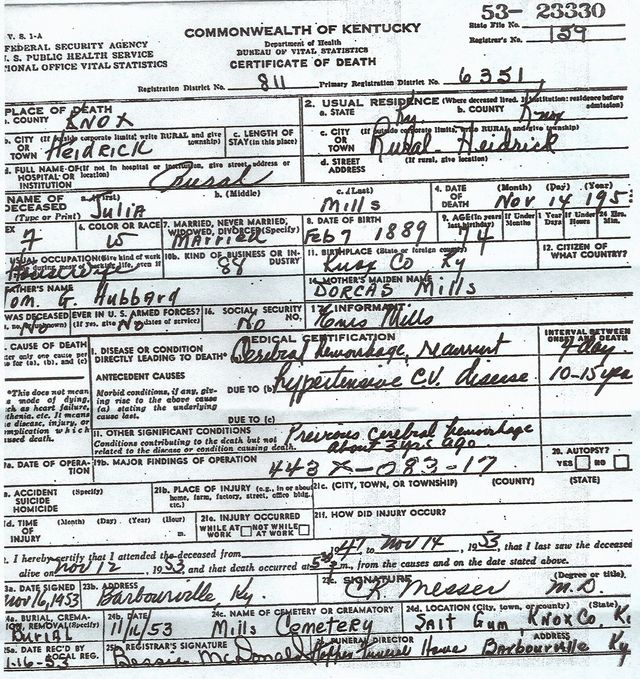 V. S. 1-A
FEDERAL SECURITY AGENCY
U. S. PUBLIC HEALTH SERVICE
IONAL OFFICE VITAL STATISTICS
COMMONWEALTH OF KENTUCKY
Department of Health
BUREAU OF VITAL STATISTICS
CERTIFICATE OF DEATH
State File No. 53-23330
Registrar's No. 159
Registration District No. 811 Primary Registration District No. 6351
PLACE OF DEATH
a. COUNTY KNOX
2. USUAL RESIDENCE (Where deceased lived. If institution: residence before admission)
a. STATE Ky. b. COUNTY Knox
b. CITY (If outside corporate limits, write RURAL and give township) OR TOWN HEIDRICK
c. LENGTH OF STAY (in this place)
c. CITY (If outside corporate limits, write RURAL and give township) OR TOWN Rural-Heidrick
d. FULL NAME OF (If not in hospital or institution, give street address or location) HOSPITAL OR INSTITUTION Rural
d. STREET ADDRESS (If rural, give location)
NAME OF DECEASED (Type or Print) a. (First) Julia b. (Middle) c. (Last) Mills
4. DATE OF DEATH (Month) (Day) (Year) Nov 14 195
EX 7
6. COLOR OR RACE W
7. MARRIED, NEVER MARRIED, WIDOWED, DIVORCED (Specify) Married
8. DATE OF BIRTH Feb 7 1889
9. AGE (In years last birthday) If Under 1 Year Months Days If Under 24 Hrs. Hours Min.
USUAL OCCUPATION (Give kind of work
10b. KIND OF BUSINESS OR INDUSTRY 88
11. BIRTHPLACE (State or foreign country) Knox Co Ky
12. CITIZEN OF WHAT COUNTRY?
FATHER'S NAME
om. G. Hubbard
14. MOTHER'S MAIDEN NAME
DORCAS Mills
WAS DECEASED EVER IN U. S. ARMED FORCES? (If yes, give dates of service) No No
16. SOCIAL SECURITY NO. No
17. INFORMANT Mills
CAUSE OF DEATH
MEDICAL CERTIFICATION
INTERVAL BETWEEN ONSET AND DEATH
I. DISEASE OR CONDITION DIRECTLY LEADING TO DEATH* Cerebral hemorrhage, recurrent day
*This does not mean mode of dying, such as heart failure, asthenia, etc. It means the disease, injury, or complication which caused death.
ANTECEDENT CAUSES
Morbid conditions, if any, giving rise to the above cause (a) stating the underlying cause last.
DUE TO (b) hypertensive C.V. disease 10-15 yrs
DUE TO (c)
II. OTHER SIGNIFICANT CONDITIONS
Conditions contributing to the death but not related to the disease or condition causing death.
Previous cerebral hemorrhage about 3 yrs ago
9a. DATE OF OPERATION
19b. MAJOR FINDINGS OF OPERATION
443X-083-17
20. AUTOPSY? YES NO
a. ACCIDENT SUICIDE HOMICIDE (Specify)
21b. PLACE OF INJURY (e.g., in or about home, farm, factory, street, office bldg. etc.)
21c. (CITY, TOWN, OR TOWNSHIP) (COUNTY) (STATE)
d. TIME OF INJURY (Month) (Day) (Year) (Hour) m.
21e. INJURY OCCURRED WHILE AT WORK NOT WHILE AT WORK
21f. HOW DID INJURY OCCUR?
I hereby certify that I attended the deceased from 1947 to Nov 14, 1953, that I last saw the deceased
alive on Nov 12, 1953 and that death occurred at m., from the causes and on the date stated above.
3a. DATE SIGNED Nov 16, 1953
23b. ADDRESS Barbourville Ky.
23c. SIGNATURE CR Messer (Degree or title) M.D.
4a. BURIAL, CREMATION, REMOVAL (Specify) Burial
24b. DATE 11/16/53
24c. NAME OF CEMETERY OR CREAMATORY Mills Cemetery
24d. LOCATION (City, town, or county) (State) Salt Gum, KNOX Co. K
5a. DATE REC'D BY LOCAL REG. 1-16-53
25b. REGISTRAR'S SIGNATURE Bessie McDonald
FUNERAL DIRECTOR Hopper Funeral Home
ADDRESS Barbourville Ky